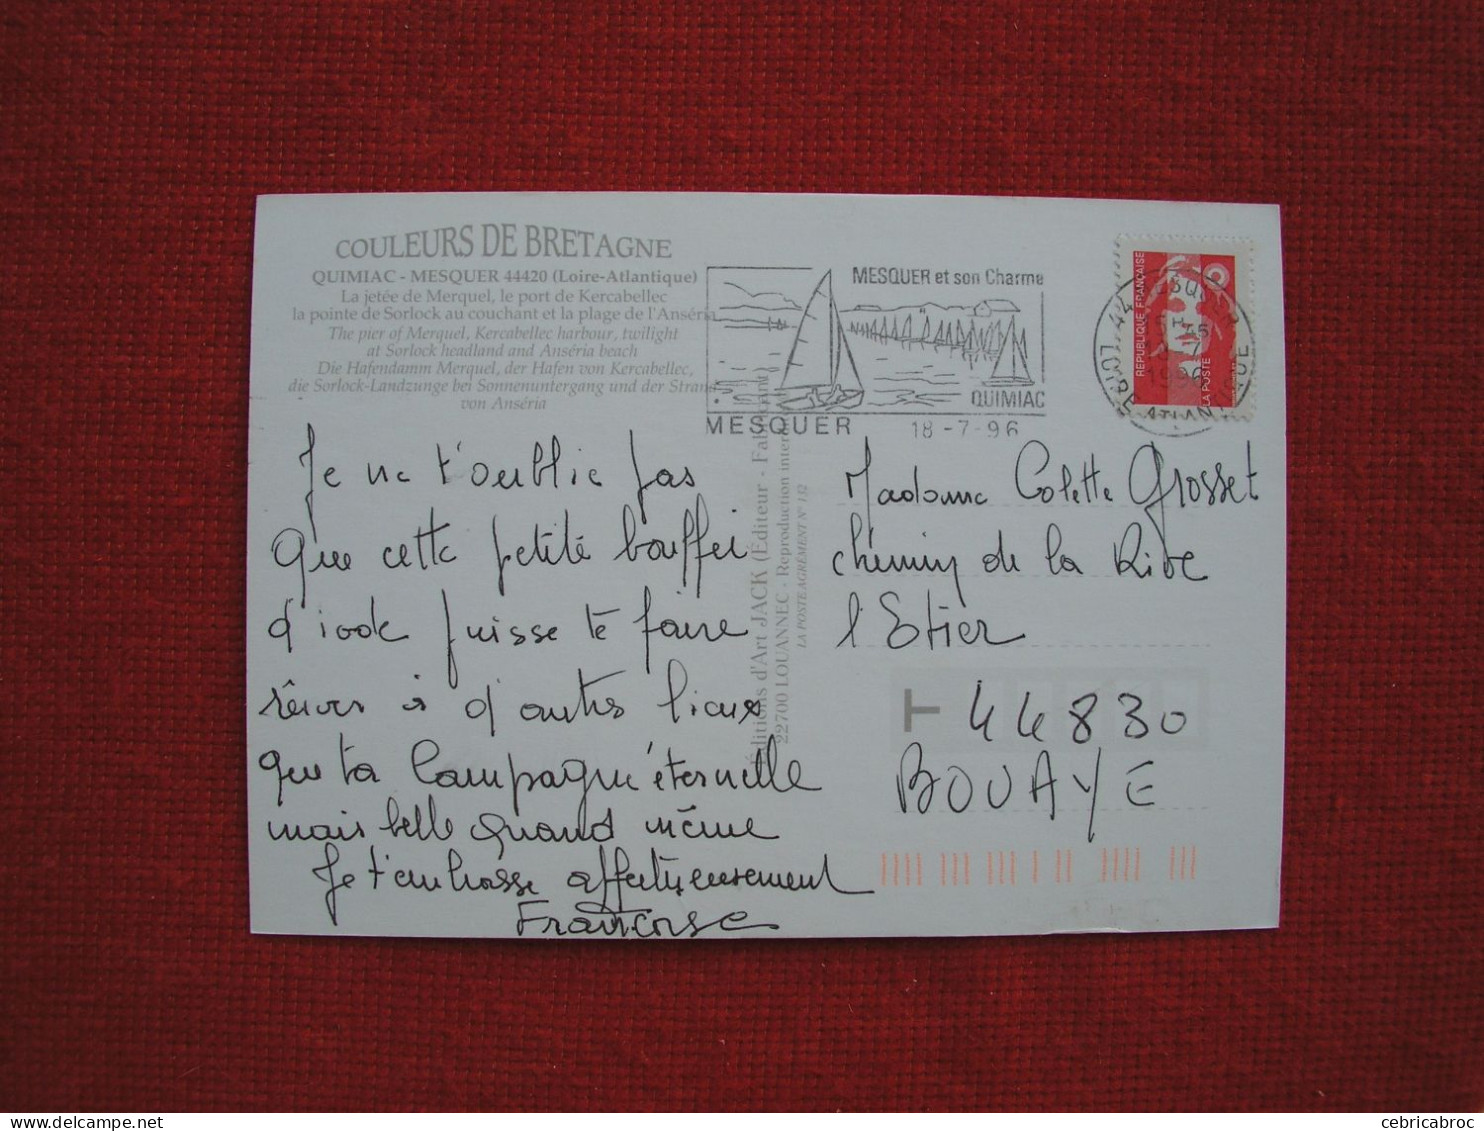 COULEURS DE BRETAGNE
QUIMIAC - MESQUER 44420 (Loire-Atlantique)
La jetée de Merquel, le port de Kercabellec
la pointe de Sorlock au couchant et la plage de l'Anséria
The pier of Merquel, Kercabellec harbour, twilight
at Sorlock headland and Anséria beach
Die Hafendamm Merquel, der Hafen von Kercabellec,
die Sorlock-Landzunge bei Sonnenuntergang und der Strand
von Anséria
MESQUER et son Charme
QUIMIAC
MESQUER 18-7-96
RÉPUBLIQUE FRANÇAISE
LA POSTE
LOIRE ATLANTIQUE
1996
Je ne t'oublie pas
que cette petite bouffei
d'iode puisse te faire
rêver à d'autres lieux
que ta Campagne éternelle
mais belle quand même
Je t'embrasse affectueusement
Françoise
Éditions d'Art JACK (Éditeur -
22700 LOUANNEC - Reproduction
LA POSTE AGRÉMENT N° 132
Madame Colette Grosset
chemin de la Rive
l'Etier
T 44830
BOUAYE
cebricabroc